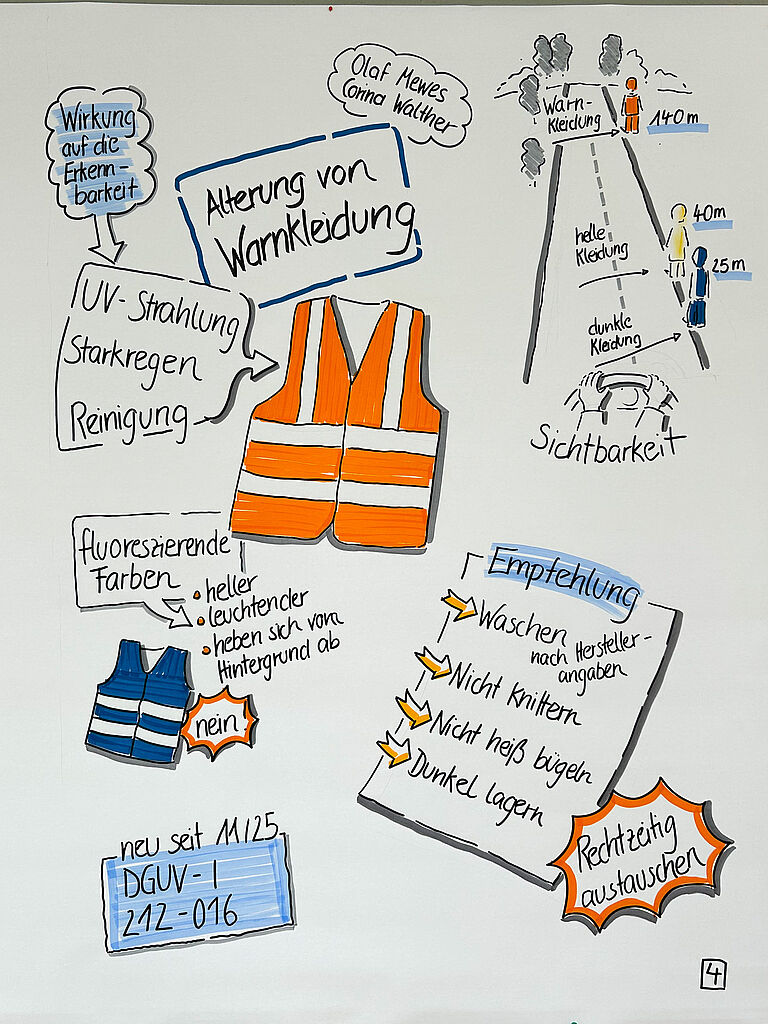 Olaf Mewes
Corina Walther
Wirkung
auf die
Erkenn-
barkeit
Alterung von
Warnkleidung
UV-Strahlung
Starkregen
Reinigung
Warn-
Kleidung
140 m
40 m
helle
Kleidung
25 m
dunkle
Kleidung
Sichtbarkeit
fluoreszierende
Farben
• heller
• leuchtender
• heben sich vom
Hintergrund ab
nein
Empfehlung
Waschen
nach Hersteller-
angaben
Nicht knittern
Nicht heiß bügeln
Dunkel lagern
Rechtzeitig
austauschen
neu seit 11/25
DGUV-I
212-016
4